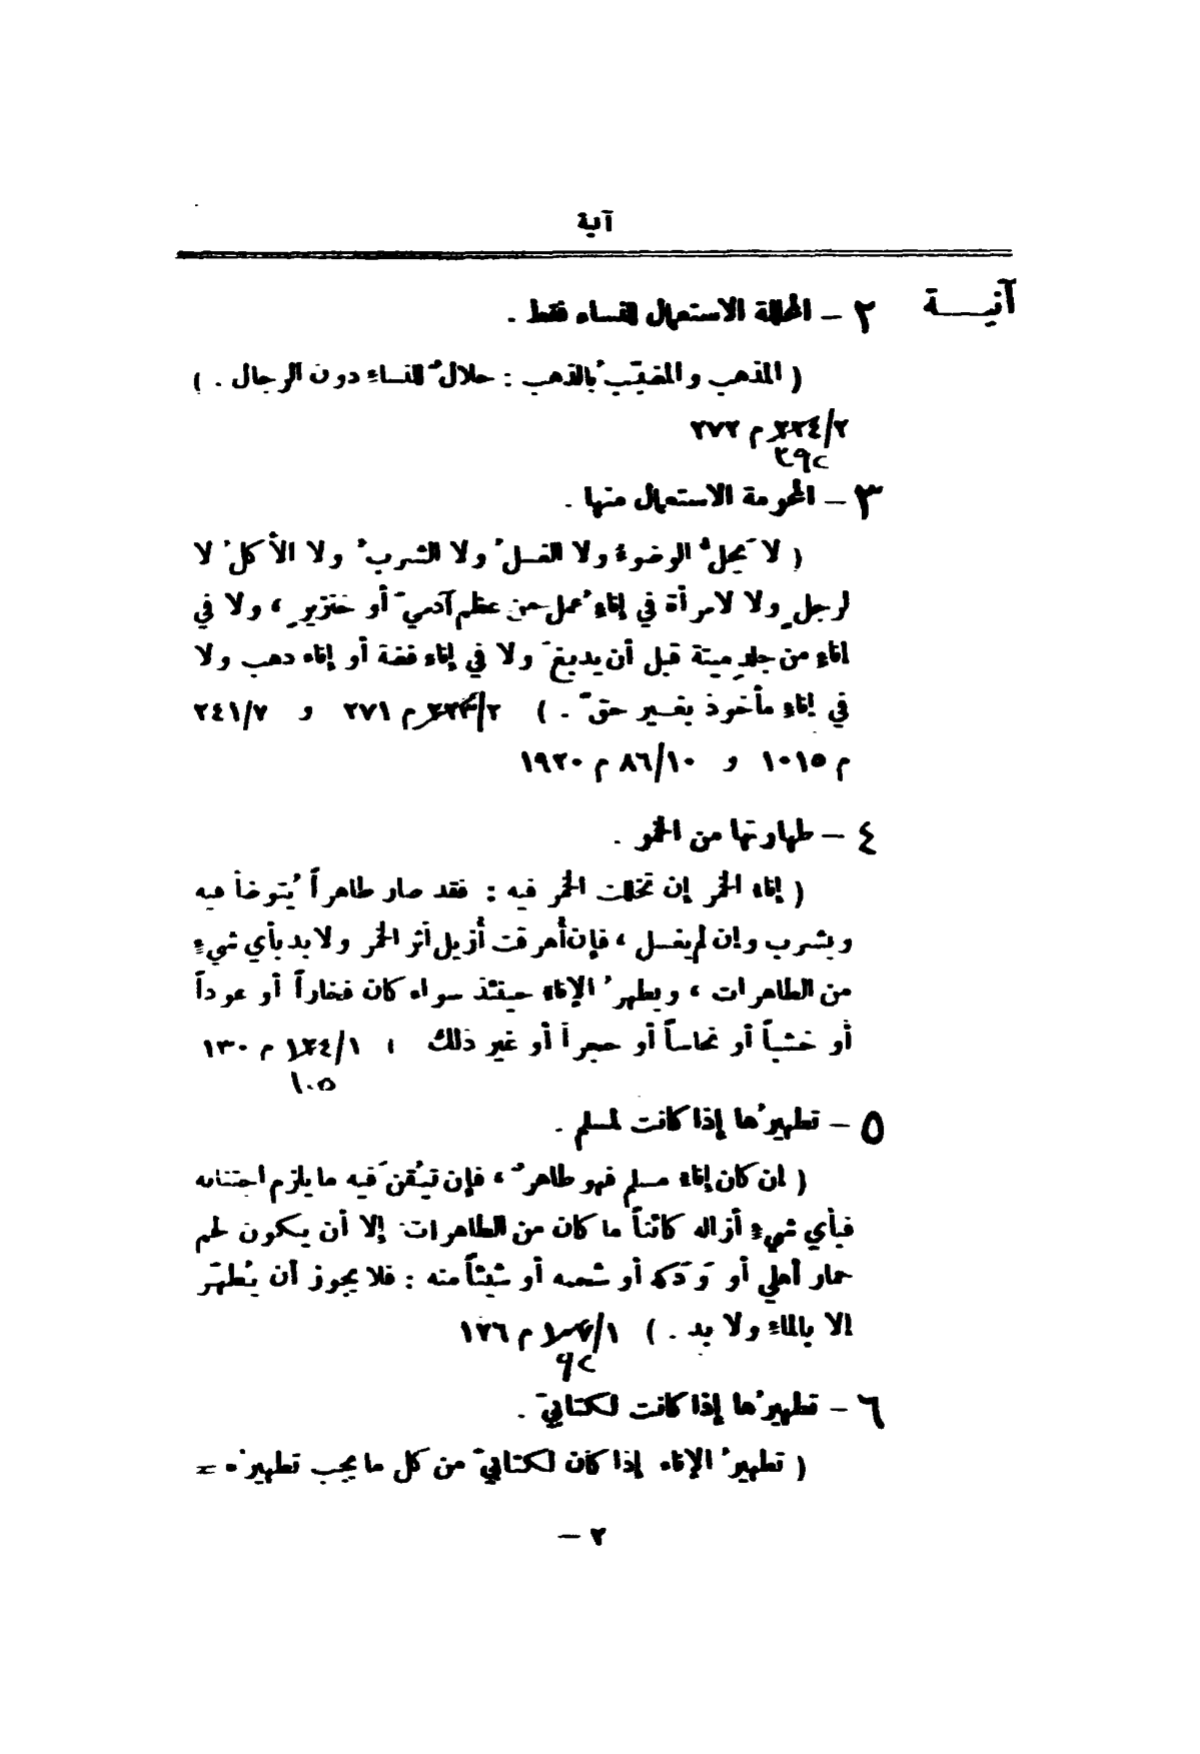 آنية
آنيـــة
٢ – المحللة الاستعمال للنساء فقط .
( المذهب والمضبَّبُ بالذهب : حلالٌ للنساء دون الرجال . )
٢/٢٢٤ م ٢٧٢
٢٩٢
٣ – المحرمة الاستعمال منها .
( لا يَحِلُّ الوضوءُ ولا الغسلُ ولا الشربُ ولا الأكلُ لا
لرجلٍ ولا لامرأة في إناءٍ عُمل من عظم آدميّ أو خنزيرٍ ، ولا في
إناءٍ من جلدِ ميتة قبل أن يدبغَ ولا في إناء فضة أو إناء ذهب ولا
في إناءٍ مأخوذ بغـير حقّ . ) ٢/ م ٢٧١ و ٢٤١/٧
م ١٠١٥ و ٨٦/١٠ م ١٩٢٠
٤ – طهارتها من الخمر .
( إناء الخمر إن تخللت الخمر فيه : فقد صار طاهراً يُتوضأ فيه
ويشرب وإن لم يغسل ، فإن أُهرقت أُزيل أثر الخمر ولا بد بأي شيءٍ
من الطاهرات ، ويطهرُ الإناء حينئذ سواء كان فخاراً أو عوداً
أو خشباً أو نحاساً أو حجراً أو غير ذلك ) ١/١٢٤ م ١٣٠
١٠٥
٥ – تطهيرُها إذا كانت لمسلم .
( إن كان إناء مسلم فهو طاهرٌ ، فإن تيُقنَ فيه ما يلزم اجتنابه
فبأي شيءٍ أزاله كائناً ما كان من الطاهرات إلا أن يـكون لحم
حمار أهلي أو وَدَكه أو شحمه أو شيئاً منه : فلا يجوز أن يُطهّر
إلا بالماء ولا بد . ) ١/١٠٧ م ١٢٦
٩٢
٦ – تطهيرُها إذا كانت لـكتابيّ .
( تطهيرُ الإناء إذا كان لـكتابيّ من كل ما يجب تطهيره =
٢ –